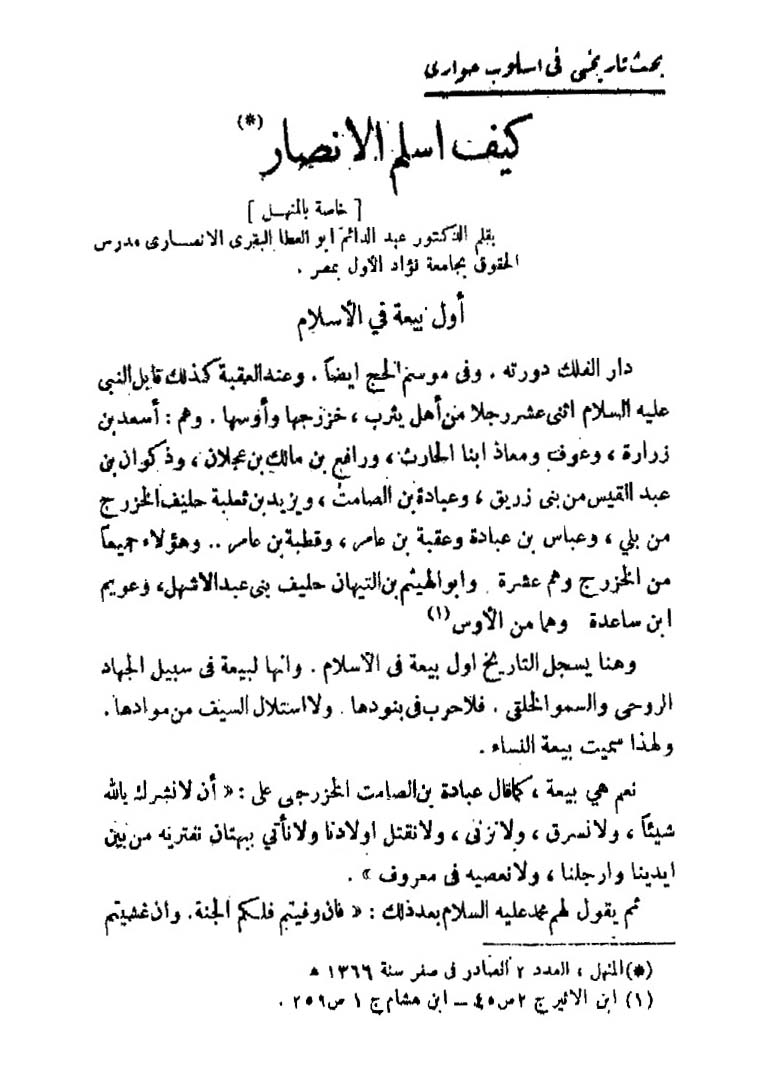 بحث تاريخي في اسلوب حواري
كيف اسلم الانصار (*)
[ خاصة بالمنهل ]
بقلم الدكتور عبد الدائم ابو العطا البقرى الانصارى مدرس
الحقوق بجامعة فؤاد الأول بمصر .
أول بيعة في الأسلام
دار الفلك دورته . وفى موسم الحج ايضاً . وعند العقبة كذلك قابل النبي
عليه السلام اثنى عشر رجلا من أهل يثرب ، خزرجها وأوسها . وهم : أسعد بن
زرارة ، وعوف ومعاذ ابنا الحارث ، ورافع بن مالك بن عجلان ، وذكوان بن
عبد القيس من بنى زريق ، وعبادة بن الصامت ، ويزيد بن ثعلبة حليف الخزرج
من بلي ، وعباس بن عبادة وعقبة بن عامر ، وقطبة بن عامر .. وهؤلاء جميعاً
من الخزرج وهم عشرة وابو الهيثم بن التيهان حليف بنى عبد الاشهل، وعويم
ابن ساعدة وهما من الأوس (١)
وهنا يسجل التاريخ اول بيعة فى الأسلام . وانها لبيعة فى سبيل الجهاد
الروحى والسمو الخلقى . فلا حرب فى بنودها . ولا استلال السيف من موادها .
ولهذا سميت بيعة النساء .
نعم هي بيعة ، كما قال عبادة بن الصامت الخزرجى على : « أن لا نشرك بالله
شيئاً ، ولا نسرق ، ولا نزنى ، ولا نقتل اولادنا ولا نأتي ببهتان نفتريه من بين
ايدينا وارجلنا ، ولا نعصيه فى معروف » .
ثم يقول لهم محمد عليه السلام بعد ذلك : « فان وفيتم فلكم الجنة. وان غشيتم
(*) المنهل ، العدد ٢ الصادر فى صفر سنة ١٣٦٦ ه
(١) ابن الاثير ج ٢ ص ٤٥ — ابن هشام ج ١ ص ٢٥٩ .